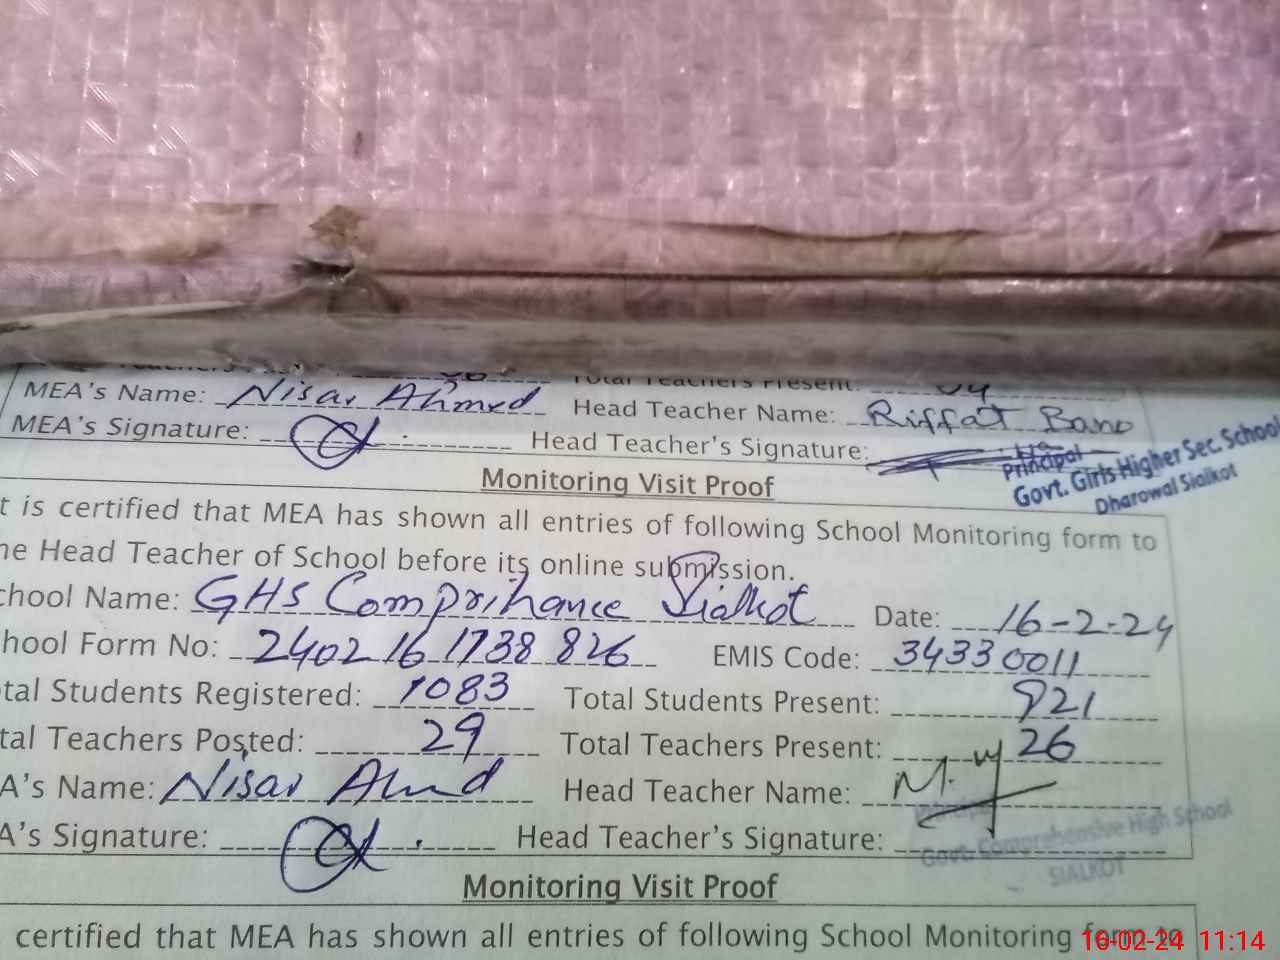 Total Teachers Present: 04
MEA's Name: Nisar Ahmed Head Teacher Name: Riffat Bano
MEA's Signature: Head Teacher's Signature:
Principal
Govt. Girls Higher Sec. School
Dharowal Sialkot
Monitoring Visit Proof
t is certified that MEA has shown all entries of following School Monitoring form to
he Head Teacher of School before its online submission.
chool Name: GHS Comprihance Sialkot Date: 16-2-24
hool Form No: 240216 1738 826 EMIS Code: 34330011
tal Students Registered: 1083 Total Students Present: 921
tal Teachers Posted: 29 Total Teachers Present: 26
A's Name: Nisar Ahmd Head Teacher Name:
A's Signature: Head Teacher's Signature:
Principal
Govt. Comprehensive High School
SIALKOT
Monitoring Visit Proof
certified that MEA has shown all entries of following School Monitoring form to
16-02-24 11:14